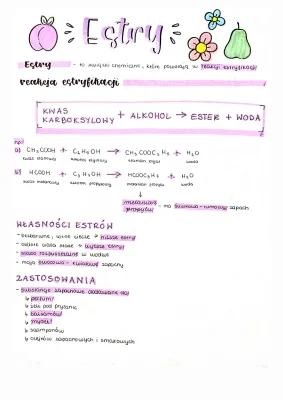 Estry
Estry - to związki chemiczne, które powstają w reakcji estryfikacji
reakcja estryfikacji
KWAS KARBOKSYLOWY + ALKOHOL → ESTER + WODA
np:
a) CH₃COOH + C₂H₅OH → CH₃COOC₂H₅ + H₂O
kwas etanowy alkohol etylowy etanian etylu woda
b) HCOOH + C₃H₇OH → HCOOC₃H₇ + H₂O
kwas metanowy alkohol propylowy metanian propylu woda
metanian propylu - ma owocowo-rumowy zapach
WŁASNOŚCI ESTRÓW
- bezbarwne, lotne ciecze → niższe estry
- oleiste ciała stałe → wyższe estry
- słabo rozpuszczalne w wodzie
- mają owocowo-kwiatowe zapachy
ZASTOSOWANIA
- substancje zapachowe dodawane do:
↳ perfum
↳ żeli pod prysznic
↳ balsamów
↳ mydeł
↳ szamponów
↳ olejków zapachowych i smakowych